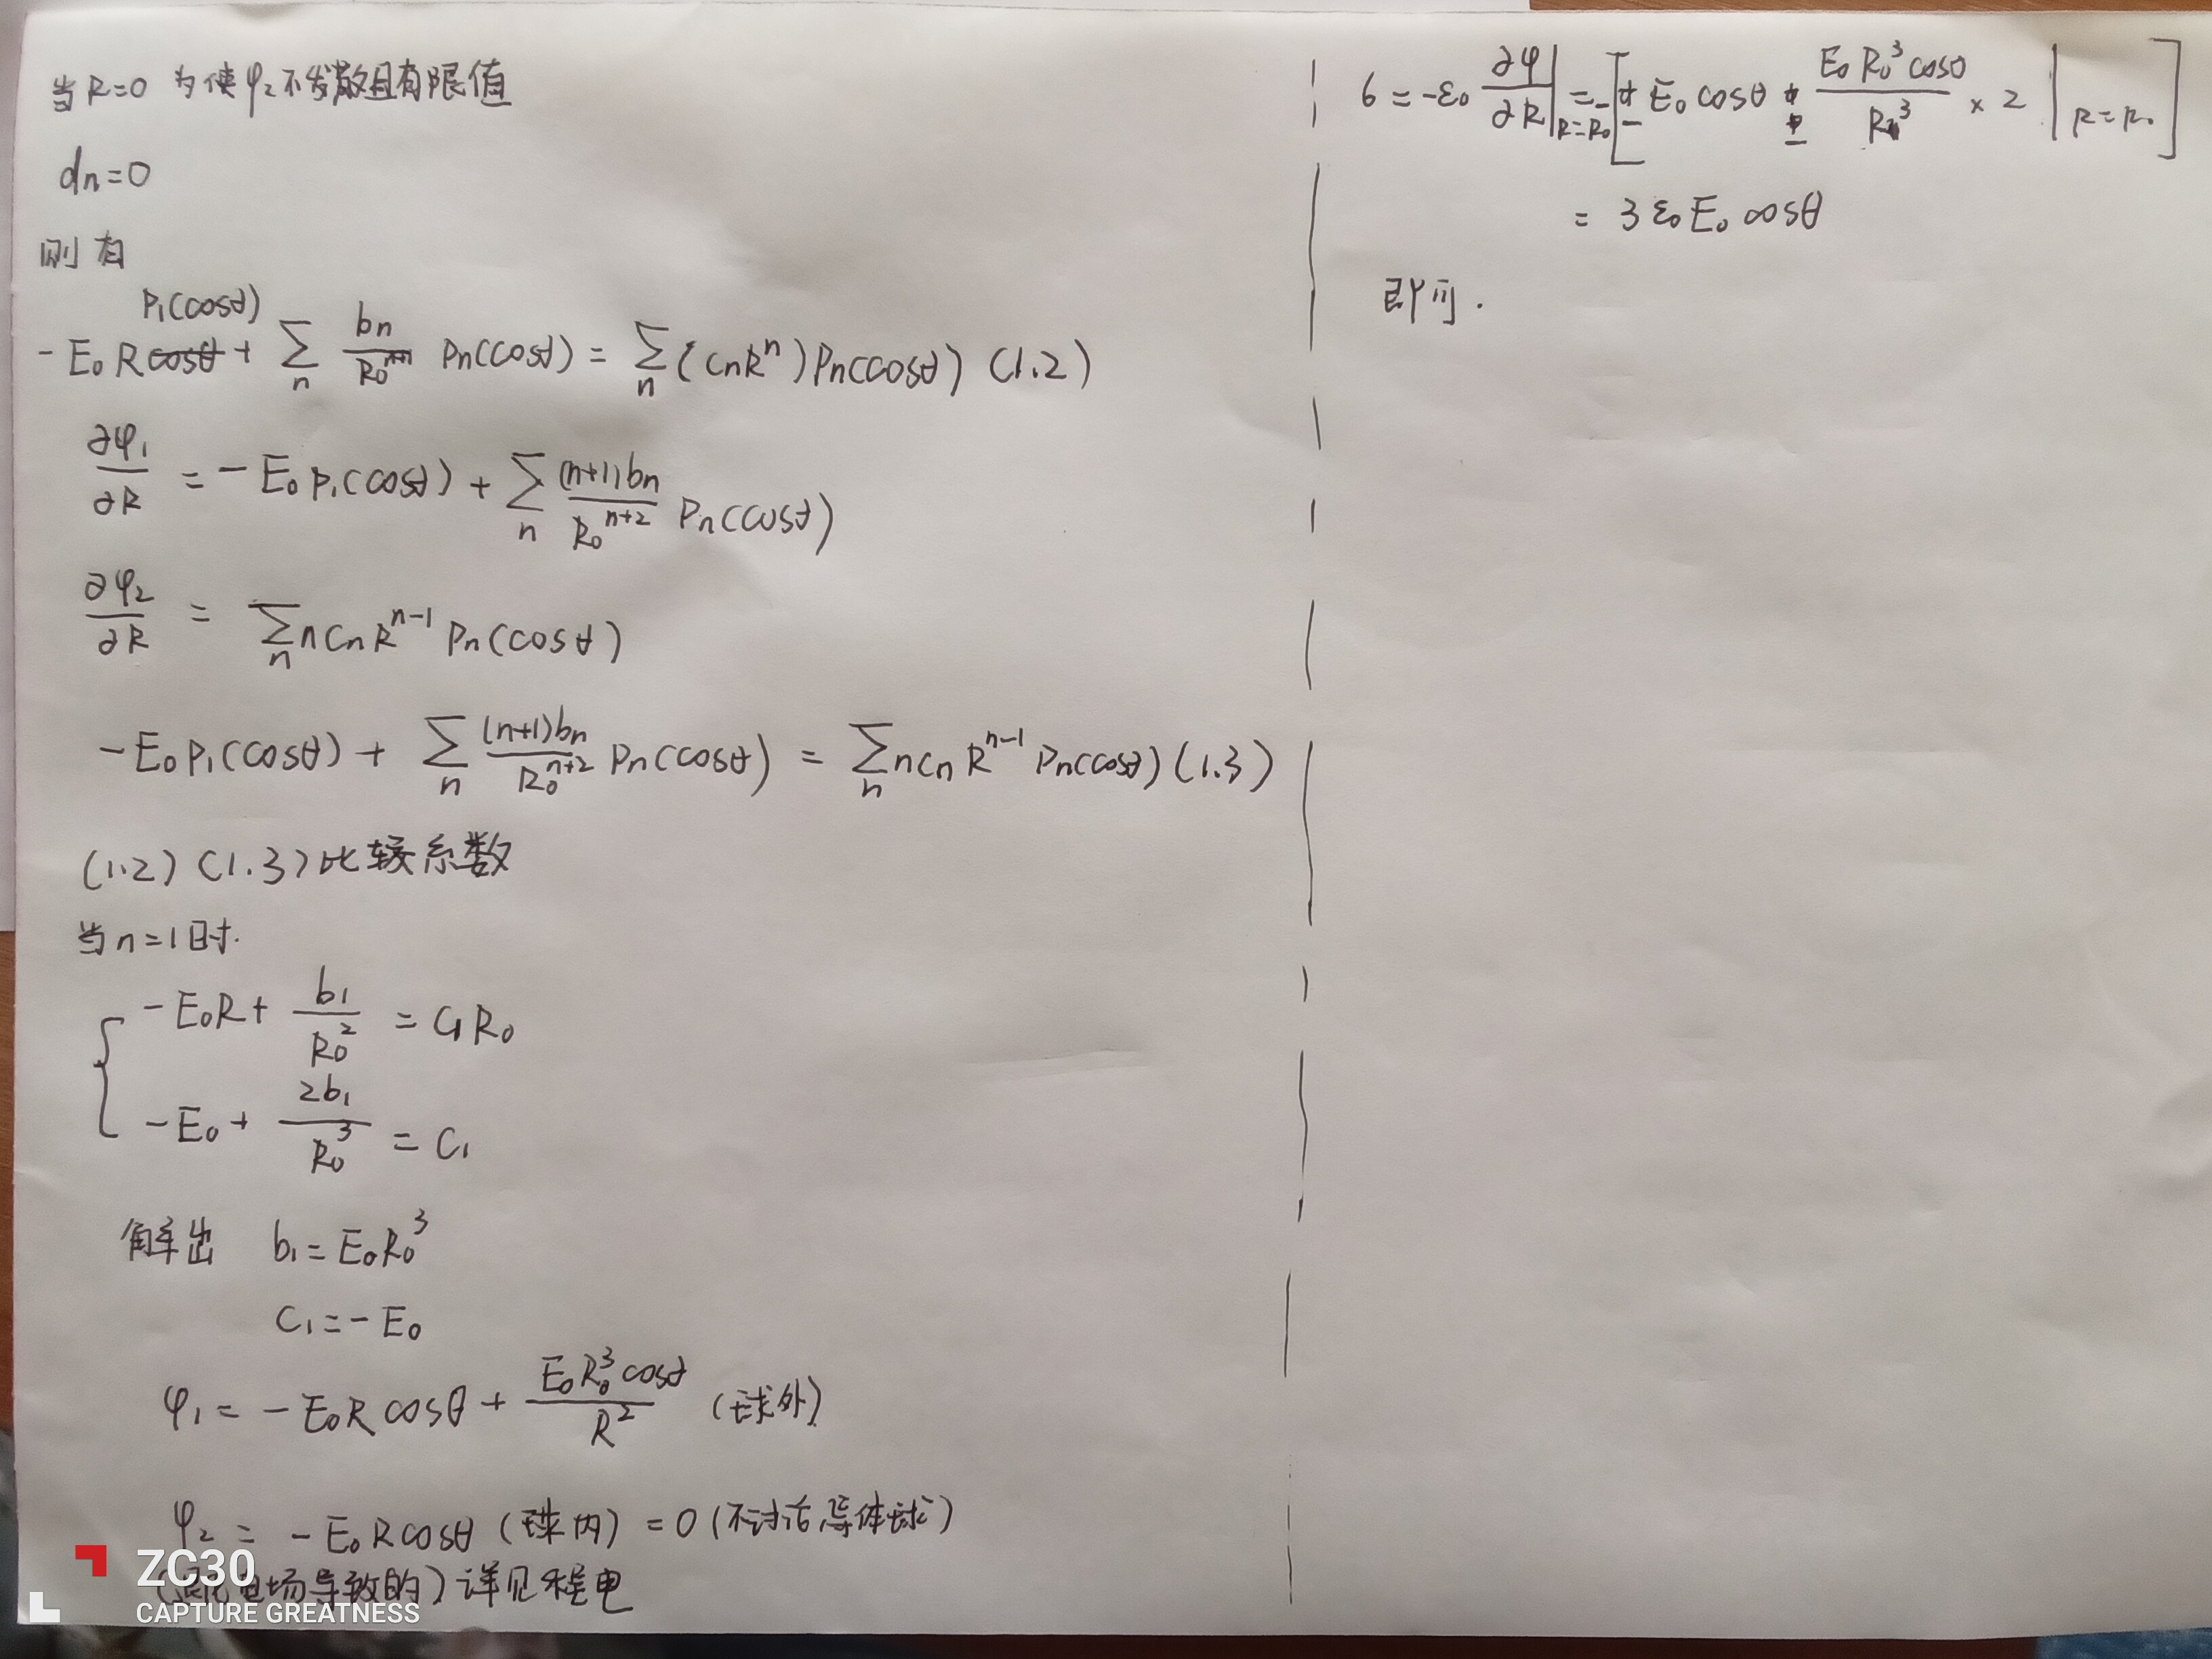 当R=0 为使φ₂不发散且有限值
dn=0
则有
P₁(cosθ)
-E₀R cosθ + ∑n bn/R₀ⁿ⁺¹ Pn(cosθ) = ∑n (CnRⁿ)Pn(cosθ) (1.2)
∂φ₁/∂R = -E₀P₁(cosθ) + ∑n (n+1)bn/R₀ⁿ⁺² Pn(cosθ)
∂φ₂/∂R = ∑n nCnRⁿ⁻¹ Pn(cosθ)
-E₀P₁(cosθ) + ∑n (n+1)bn/R₀ⁿ⁺² Pn(cosθ) = ∑n nCnRⁿ⁻¹ Pn(cosθ) (1.3)
(1.2) (1.3)比较系数
当n=1时.
-E₀R + b₁/R₀² = C₁R₀
-E₀ + 2b₁/R₀³ = C₁
解出 b₁=E₀R₀³
C₁=-E₀
φ₁ = -E₀R cosθ + E₀R₀³cosθ/R² (球外)
φ₂ = -E₀Rcosθ (球内) = 0 (不讨论导体球)
电场导致的) 详见程电
6 = -ε₀ ∂φ/∂R|R=R₀ = -[ - E₀cosθ - E₀R₀³cosθ/R³ × 2 |R=R₀ ]
= 3ε₀E₀cosθ
即可.
ZC30
CAPTURE GREATNESS